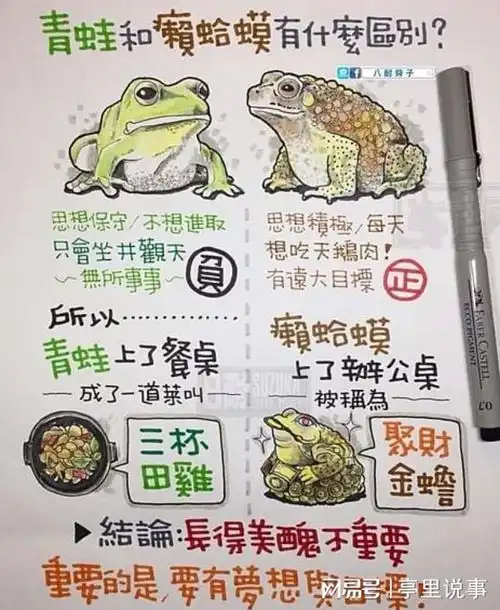 青蛙和癩蛤蟆有什麼區別?
八耐舜子
思想保守/不想進取
只會坐井觀天
~無所事事~
負
思想積極/每天
想吃天鵝肉!
有遠大目標
正
所以............
青蛙上了餐桌
—成了一道菜叫—
三杯
田雞
癩蛤蟆
上了辦公桌
—被稱為—
聚財
金蟾
▶結論:長得美醜不重要
重要的是,要有夢想與
搜狐号|亭里说事
FABER CASTELL
ECCO PIGMENT
0.7